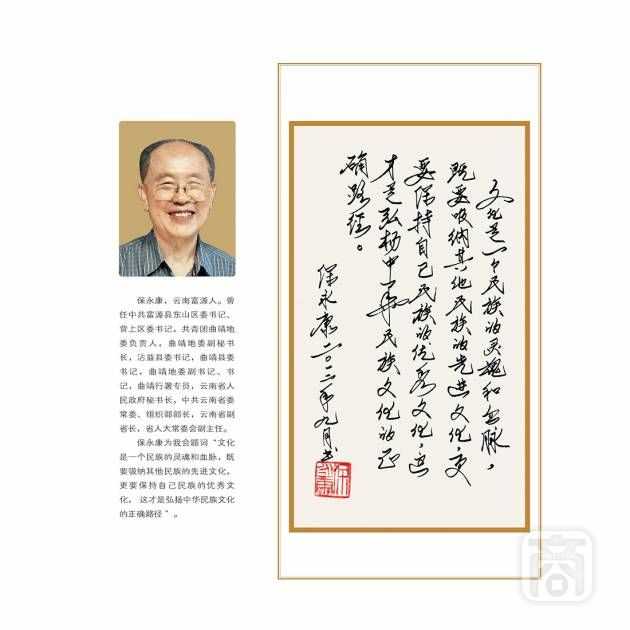 保永康，云南富源人。曾
任中共富源县东山区委书记、
营上区委书记，共青团曲靖地
委负责人，曲靖地委副秘书
长，沾益县委书记，曲靖县委
书记，曲靖地委副书记、书
记，曲靖行署专员，云南省人
民政府秘书长，中共云南省委
常委、组织部部长，云南省副
省长，省人大常委会副主任。
保永康为我会题词“文化
是一个民族的灵魂和血脉，既
要吸纳其他民族的先进文化，
更要保持自己民族的优秀文
化， 这才是弘扬中华民族文化
的正确路径 ”。
文化是一个民族的灵魂和血脉，
既要吸纳其他民族的先进文化，更
要保持自己民族的优秀文化，这
才是弘扬中华民族文化的正
确路径。
保永康二〇一二年九月书
商